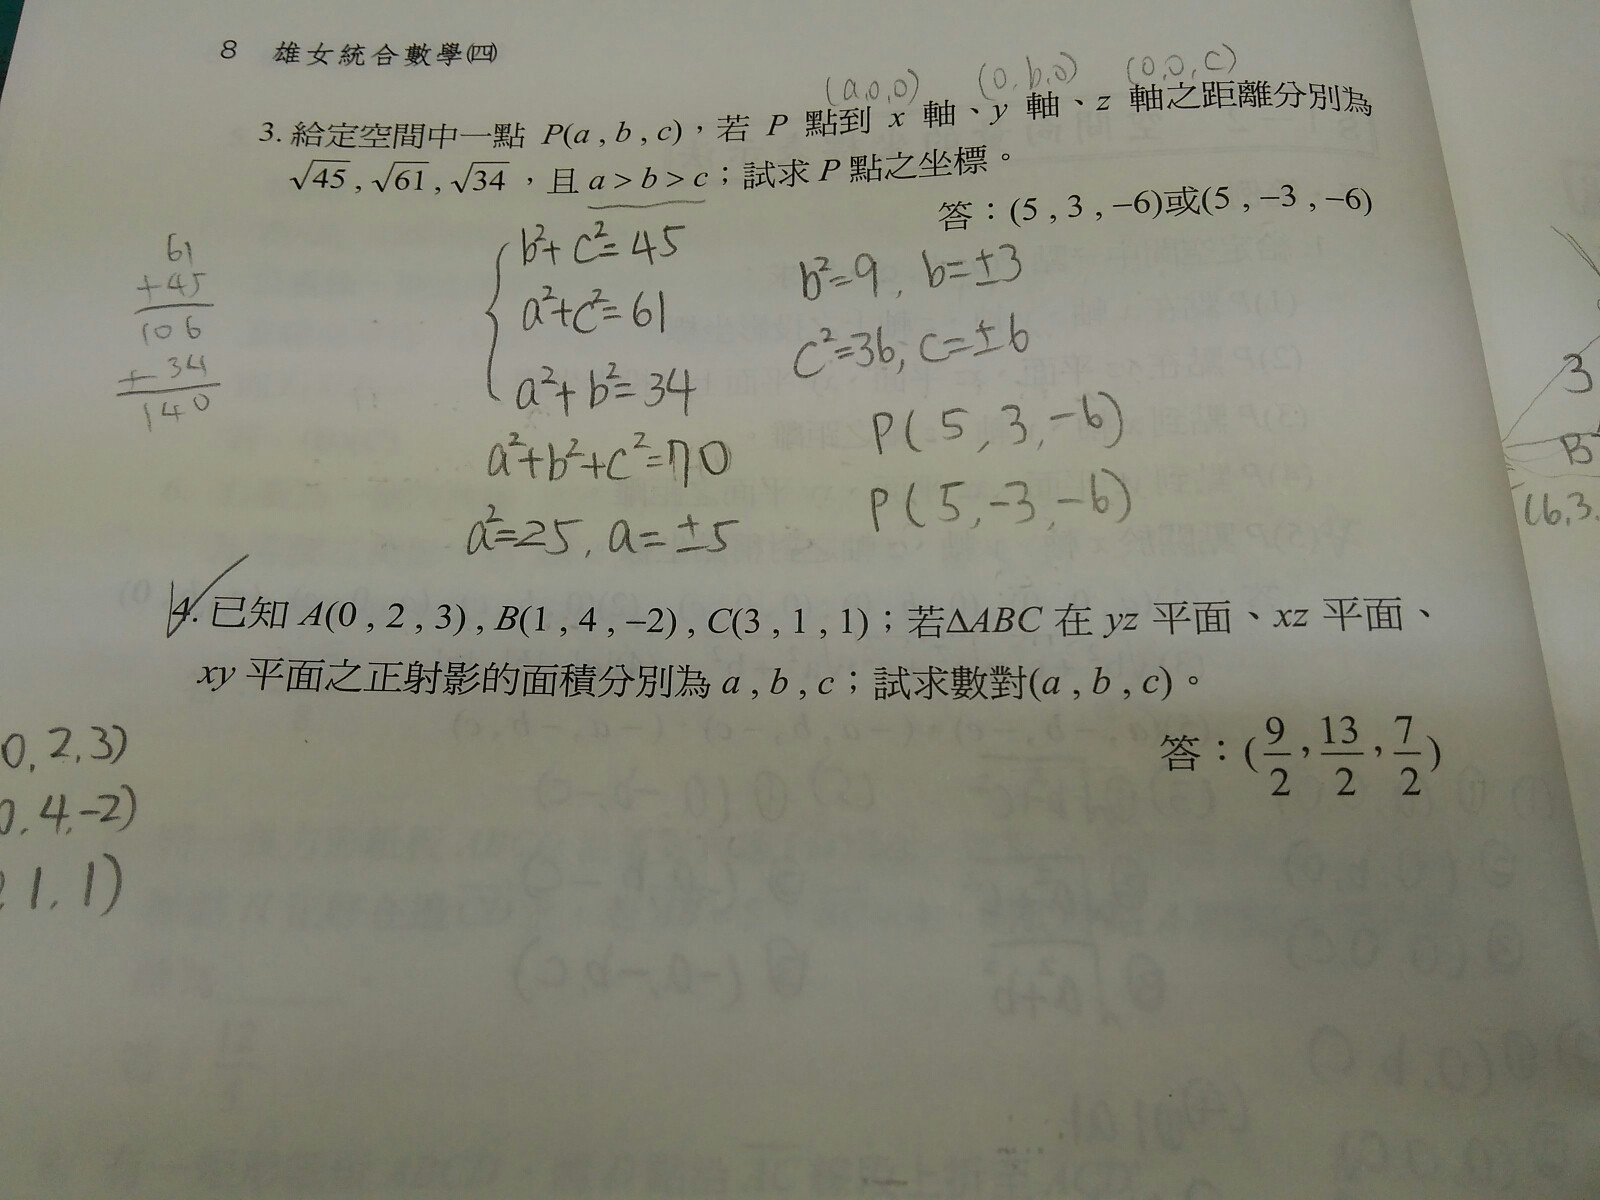 8 雄女統合數學㈣
(a,0,0) (0,b,0) (0,0,c)
3. 給定空間中一點 P(a , b , c)，若 P 點到 x 軸、y 軸、z 軸之距離分別為
√45 , √61 , √34 ，且 a > b > c；試求 P 點之坐標。
答：(5 , 3 , −6)或(5 , −3 , −6)
61
+45
106
+ 34
140
b²+c²=45
a²+c²=61
a²+b²=34
a²+b²+c²=70
a²=25, a=±5
b²=9, b=±3
c²=36, c=±6
P(5,3,-6)
P(5,-3,-6)
3
B
(6,3.
4. 已知 A(0 , 2 , 3) , B(1 , 4 , −2) , C(3 , 1 , 1)；若ΔABC 在 yz 平面、xz 平面、
xy 平面之正射影的面積分別為 a , b , c；試求數對(a , b , c)。
答：(9/2 , 13/2 , 7/2)
0,2,3)
0,4,-2)
,1,1)